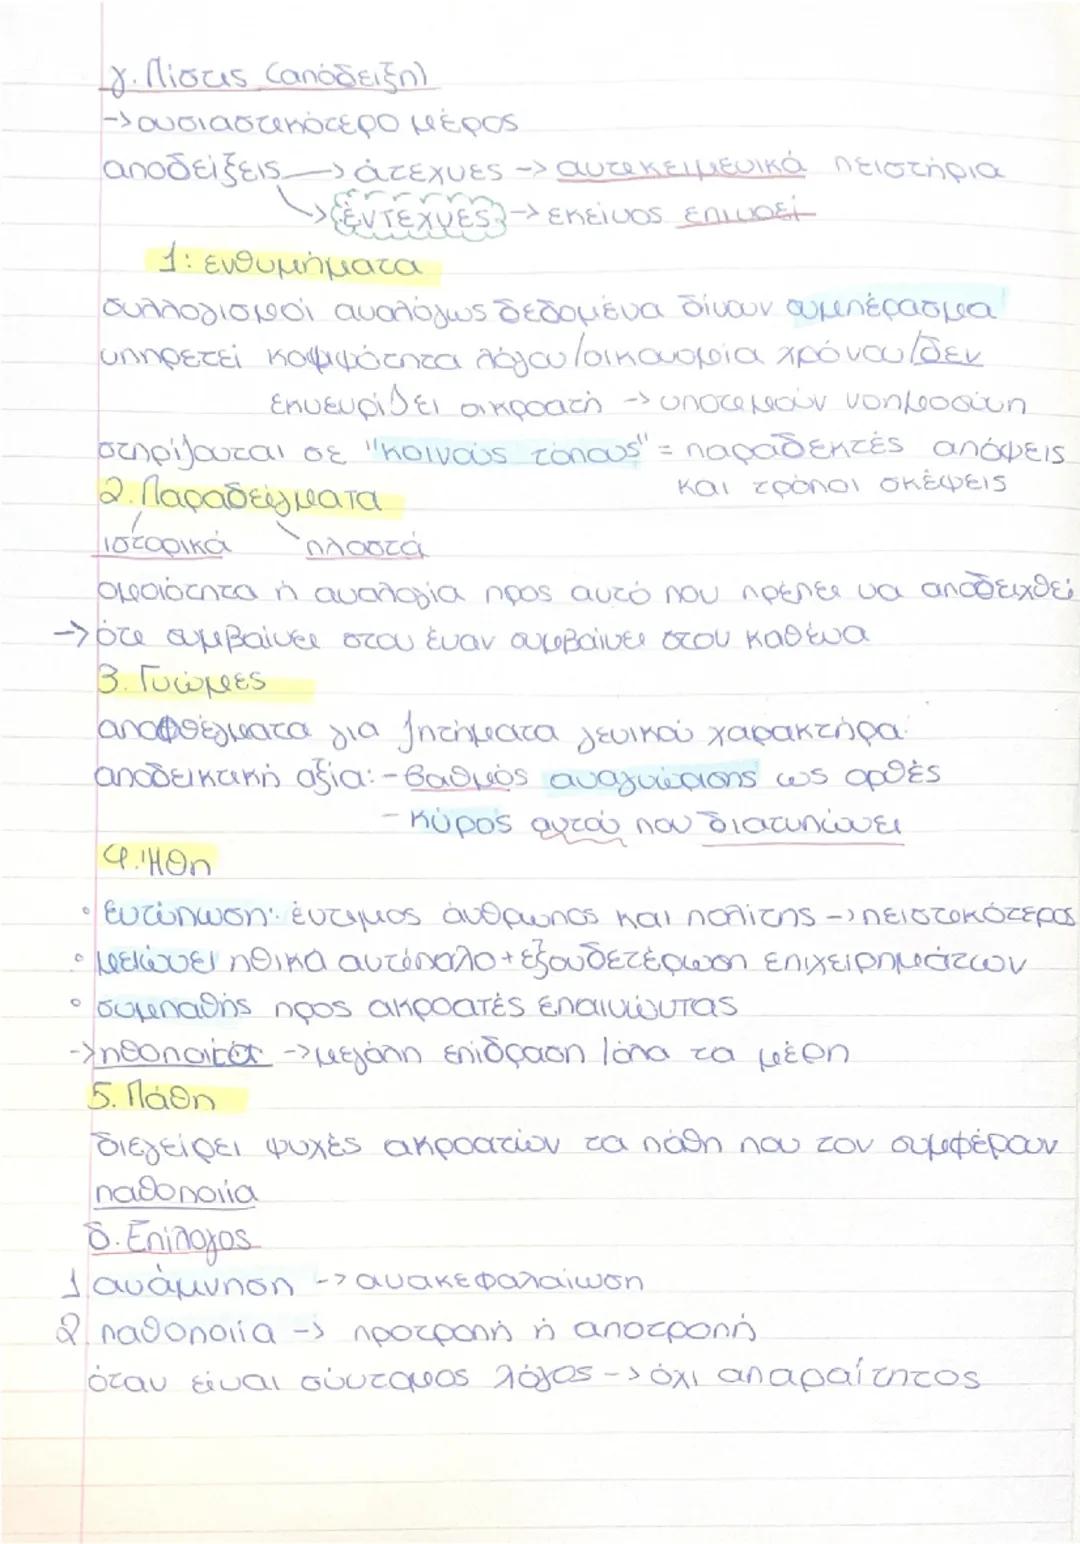 γ. Πίστις (απόδειξη)
-> ουσιαστικότερο μέρος
αποδείξεις -> άτεχνες -> αντικειμενικά πειστήρια
-> έντεχνες -> εκείνος επινοεί
1: ενθυμήματα
συλλογισμοί αναλόγως δεδομένα δίνουν συμπέρασμα
υπηρετεί κομψότητα λόγου/οικονομία χρόνου/δεν
εκνευρίζει ακροατή -> υποτιμούν νοημοσύνη
στηρίζονται σε "κοινούς τόπους" = παραδεκτές απόψεις
και τρόποι σκέψεις
2. Παραδείγματα
ιστορικά πλαστά
ομοιότητα ή αναλογία προς αυτό που πρέπει να αποδειχθεί
-> ότι συμβαίνει στον έναν συμβαίνει στον καθένα
3. Γνώμες
αποφθέγματα για ζητήματα γενικού χαρακτήρα
αποδεικτική αξία: - βαθμός αναγνώρισης ως ορθές
- κύρος αυτού που διατυπώνει
4. Ήθη
• εντύπωση: έντιμος άνθρωπος και πολίτης -> πειστικότερος
• μειώνει ηθικά αντίπαλο + εξουδετέρωση επιχειρημάτων
• συμπαθής προς ακροατές επαινώντας
-> ηθοποιία -> μεγάλη επίδραση/όλα τα μέρη
5. Πάθη
διεγείρει ψυχές ακροατών τα πάθη που τον συμφέρουν
παθοποιία
δ. Επίλογος
1 ανάμνηση -> ανακεφαλαίωση
2. παθοποιία -> προτροπή ή αποτροπή
όταν είναι σύντομος λόγος -> όχι απαραίτητος